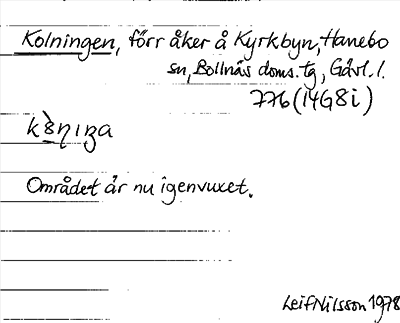 Kolningen, förr åker å Kyrkbyn, Hanebo
sn, Bollnäs doms. tg, Gävl. l.
776 (14G8i)
Området är nu igenvuxet.
Leif Nilsson 1978